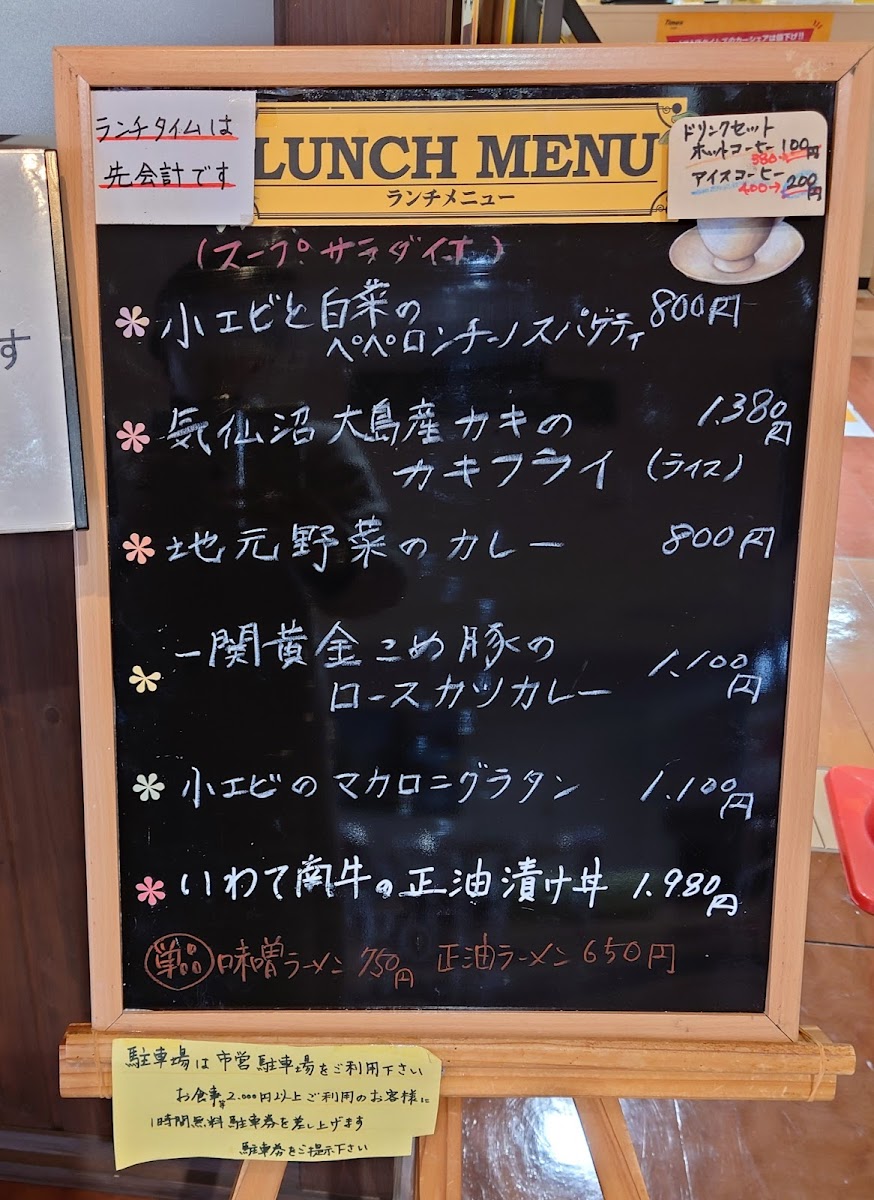 ランチタイムは
先会計です
LUNCH MENU
ランチメニュー
ドリンクセット
ホットコーヒー 100円
380→
アイスコーヒー
400→200円
(スープ サラダ付)
小エビと白菜の
ペペロンチーノスパゲティ 800円
気仙沼大島産カキの 1.380円
カキフライ (ライス)
地元野菜のカレー 800円
一関黄金こめ豚の
ロースカツカレー 1.100円
小エビのマカロニグラタン 1.100円
いわて南牛の正油漬け丼 1.980円
単品 味噌ラーメン 750円 正油ラーメン 650円
駐車場は市営駐車場をご利用下さい
お食事等2.000円以上ご利用のお客様に
1時間無料駐車券を差し上げます
駐車券をご提示下さい
す
Times